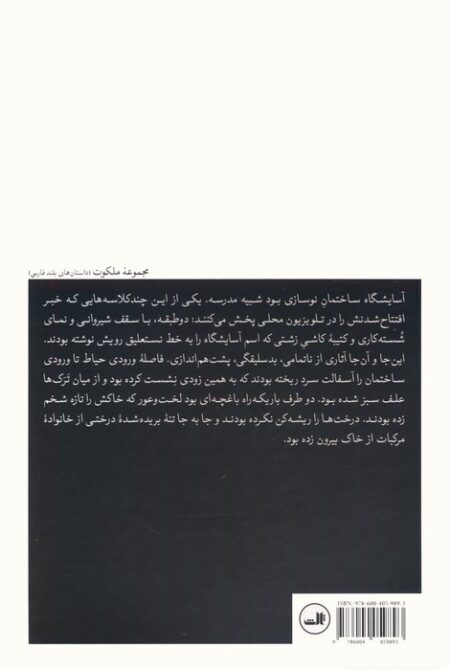 مجموعهٔ ملکوت (داستان‌های بلند فارسی)
آسایشگاه ساختمان نوسازی بود شبیه مدرسه. یکی از این چندکلاسه‌هایی که خبر
افتتاح‌شدنش را در تلویزیون محلی پخش می‌کنند: دوطبقه، با سقف شیروانی و نمای
شُسته‌کاری و کتیبهٔ کاشیِ زشتی که اسم آسایشگاه را به خط نستعلیق رویش نوشته بودند.
این‌جا و آن‌جا آثاری از ناتمامی، بدسلیقگی، پشت‌هم‌اندازی. فاصلهٔ ورودی حیاط تا ورودی
ساختمان را آسفالت سرد ریخته بودند که به همین زودی نِشست کرده بود و از میان تَرَک‌ها
علف سبز شده بود. دو طرف باریکه‌راه باغچه‌ای بود لخت‌وعور که خاکش را تازه شخم
زده بودند. درخت‌ها را ریشه‌کن نکرده بودند و جا به جا تنهٔ بریده‌شدهٔ درختی از خانوادهٔ
مرکبات از خاک بیرون زده بود.
ISBN: 978-600-405-989-3
9 786004 059893
ثالث